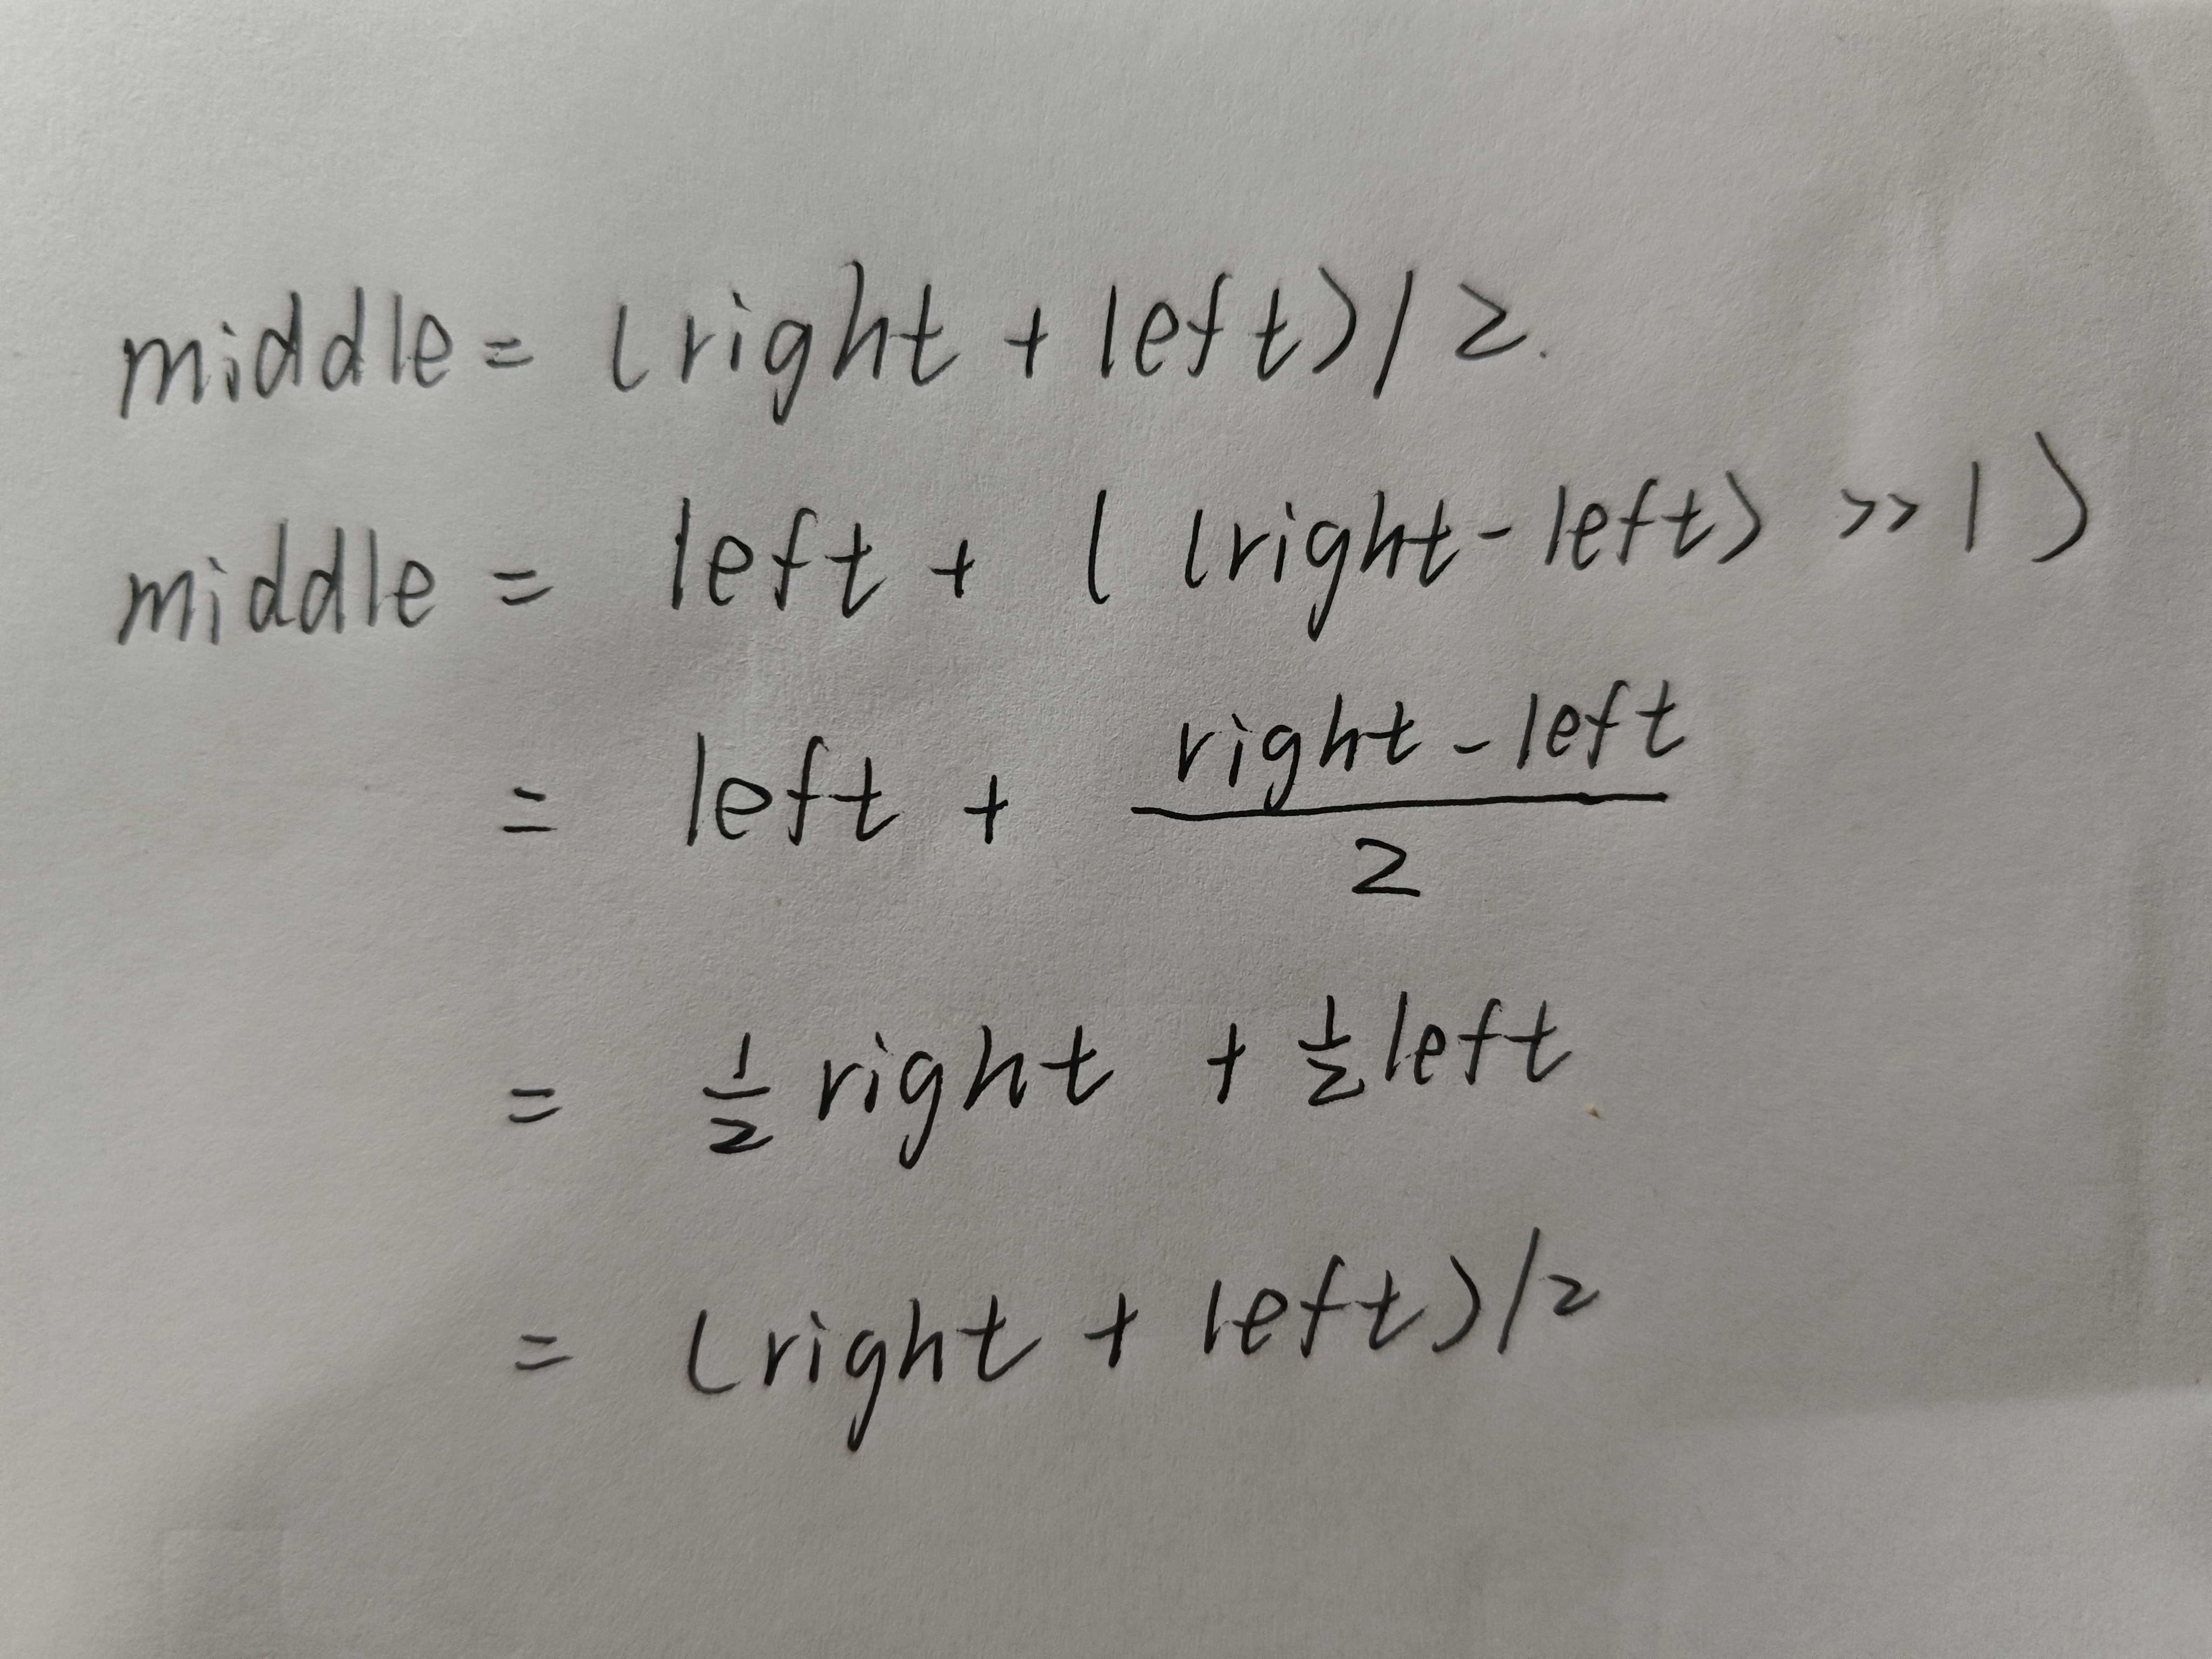 middle = (right + left)/2.
middle = left + ( (right - left) >> 1 )
= left + \frac{right - left}{2}
= \frac{1}{2} right + \frac{1}{2} left
= (right + left)/2